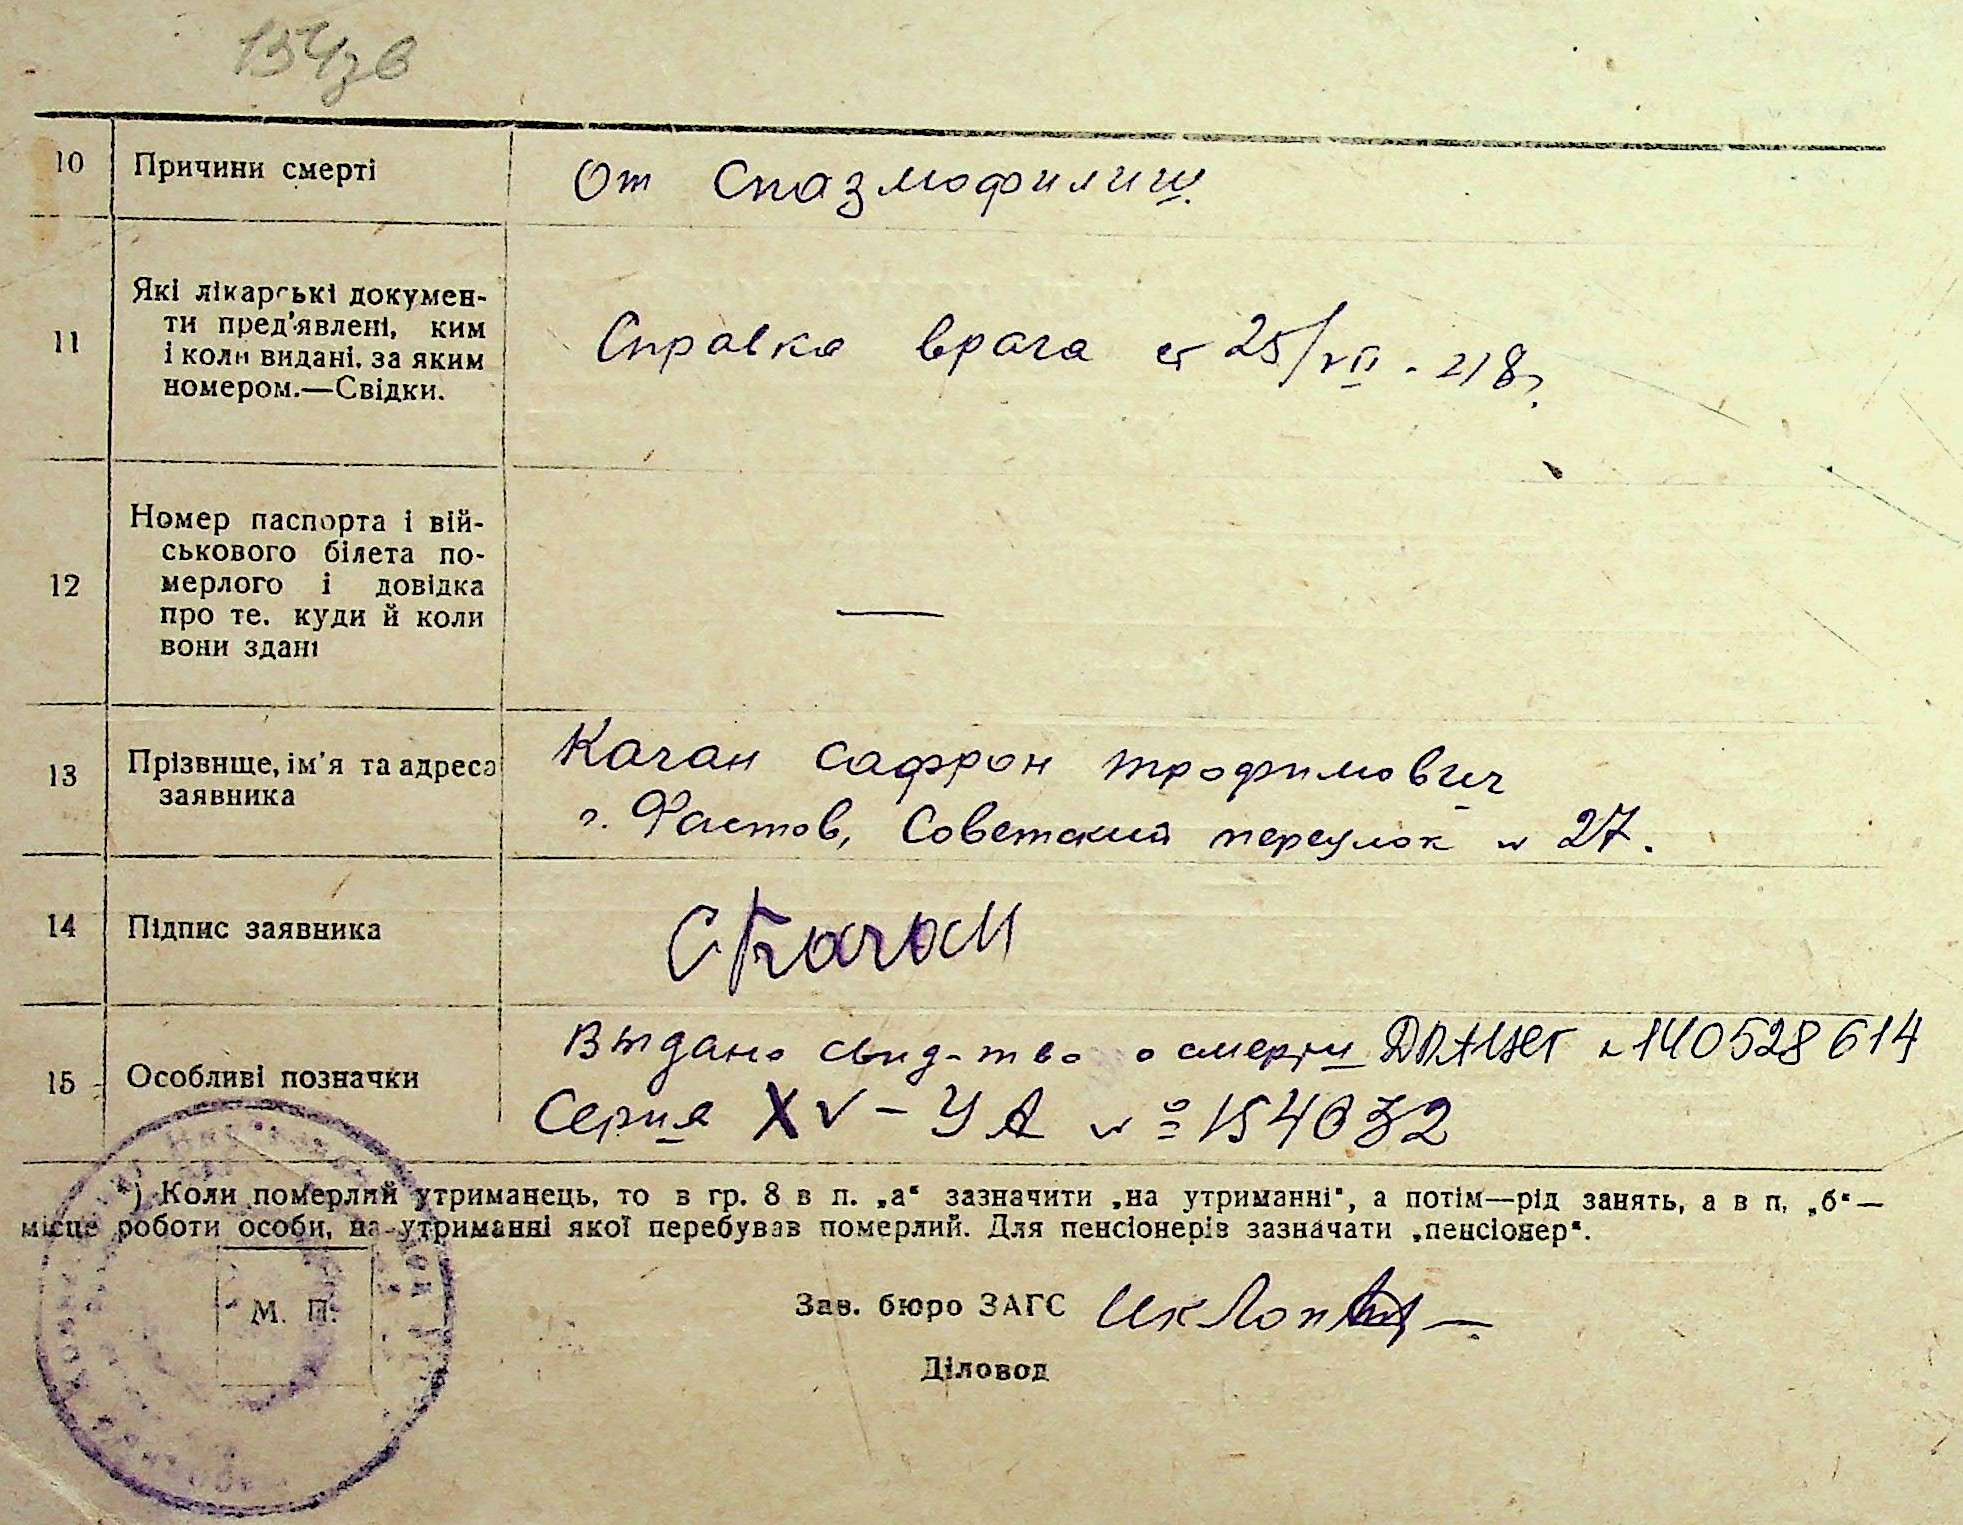 10 Причини смерті От Спазмофилии.
11 Які лікарські докумен-
ти пред'явлені, ким
і коли видані, за яким
номером.—Свідки.
Справка врача от 25/VII - 48 г.
12 Номер паспорта і вій-
ськового білета по-
мерлого і довідка
про те. куди й коли
вони здані
—
13 Прізвище, ім'я та адреса
заявника
Качан Сафрон Трофимович
г. Фастов, Советский переулок № 27.
14 Підпис заявника С Качан
15 Особливі позначки
Выдано свид-тво о смерти № 140528614
Серия XV – УА №
*) Коли померлий утриманець, то в гр. 8 в п. „а“ зазначити „на утриманні“, а потім—рід занять, а в п. „б“—
місце роботи особи, на утриманні якої перебував померлий. Для пенсіонерів зазначати „пенсіонер“.
М. П.
Зав. бюро ЗАГС
Діловод